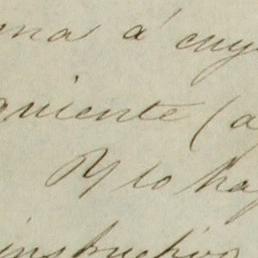 ma á cuy
quiente (a
Y lo ha
instructivo